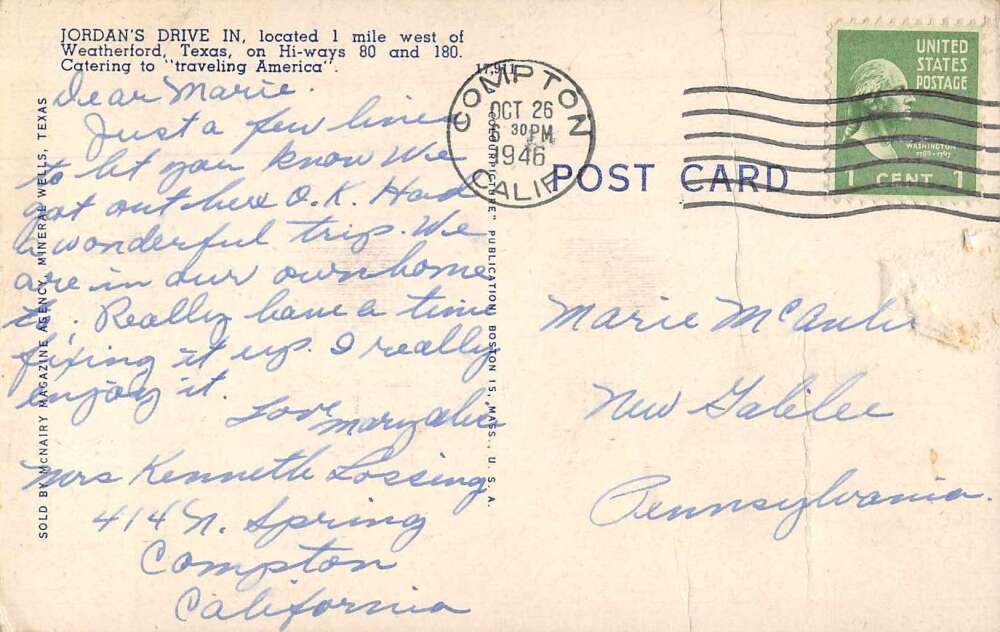 JORDAN'S DRIVE IN, located 1 mile west of
Weatherford, Texas, on Hi-ways 80 and 180.
Catering to "traveling America".
17,911
Dear Marie.
Just a few lines
to let you know We
got out here O.K. Had
a wonderful trip. We
are in our own home
Really have a time
fixing it up. I really
enjoy it.
Love
Mary Alice
Mrs Kenneth Lossing
414 N. Spring
Compton
California
SOLD BY MCNAIRY MAGAZINE AGENCY, MINERAL WELLS, TEXAS
PUBLICATION, BOSTON 15, MASS., U. S. A.
COMPTON
OCT 26
6 30 PM
1946
CALIF
POST CARD
UNITED
STATES
POSTAGE
WASHINGTON
1789-1797
1 CENT 1
Marie
New Galilee
Pennsylvania.